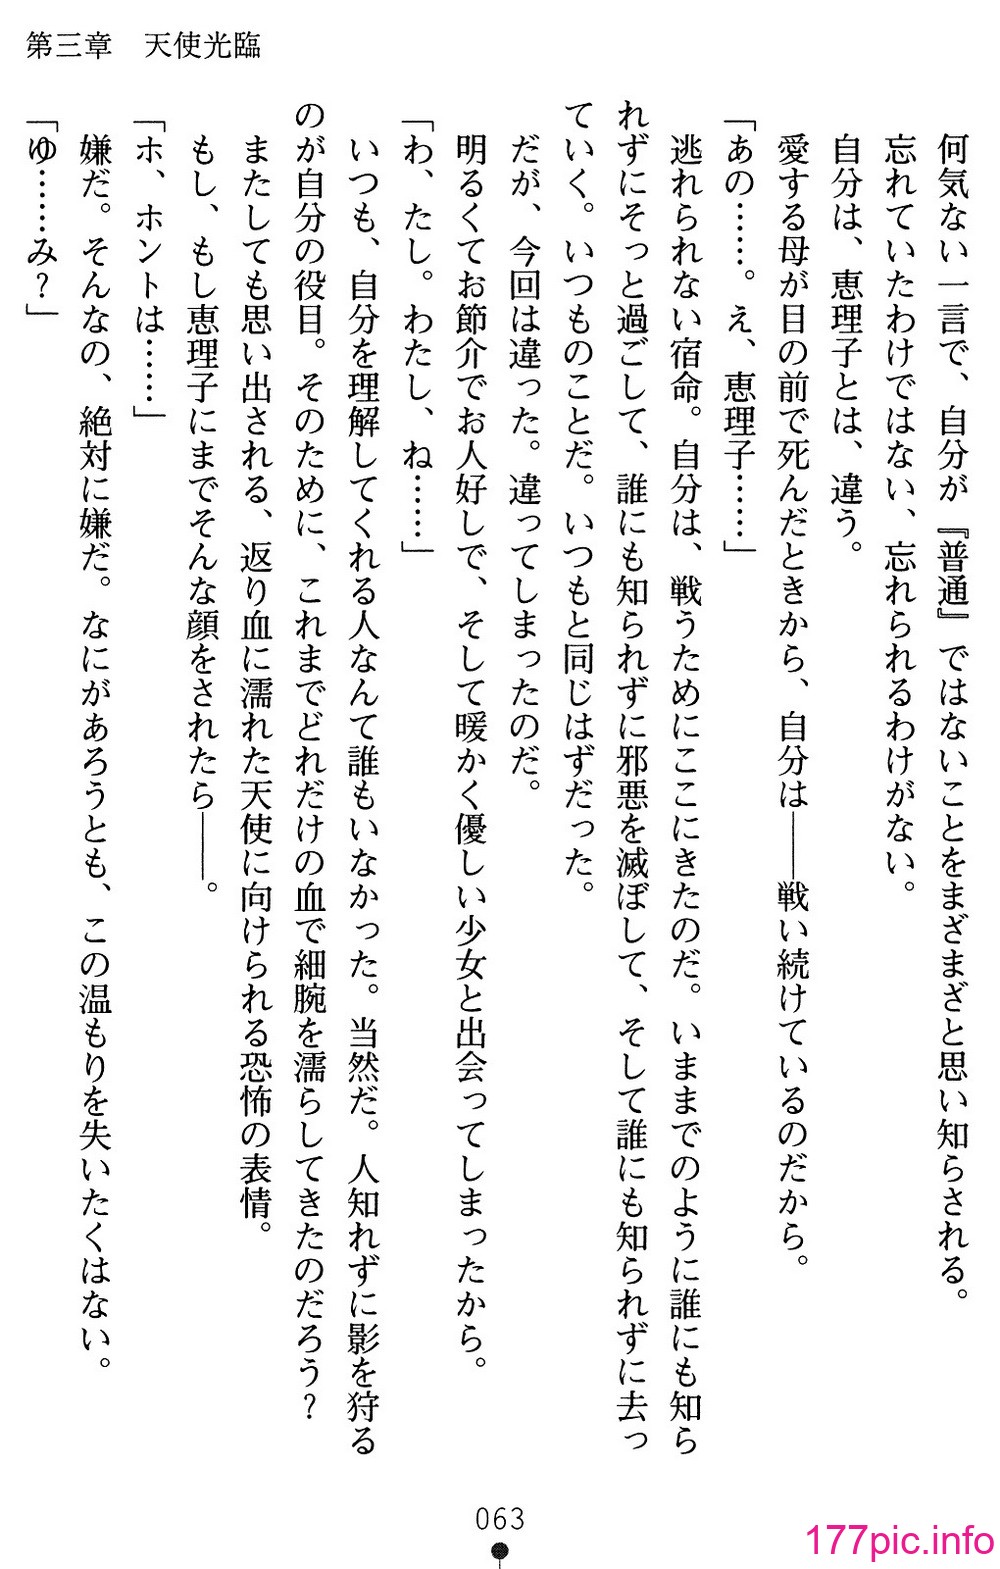 第三章　天使光臨
何気ない一言で、自分が『普通』ではないことをまざまざと思い知らされる。
忘れていたわけではない、忘れられるわけがない。
自分は、恵理子とは、違う。
愛する母が目の前で死んだときから、自分は――戦い続けているのだから。
「あの……。え、恵理子……」
逃れられない宿命。自分は、戦うためにここにきたのだ。いままでのように誰にも知ら
れずにそっと過ごして、誰にも知られずに邪悪を滅ぼして、そして誰にも知られずに去っ
ていく。いつものことだ。いつもと同じはずだった。
だが、今回は違った。違ってしまったのだ。
明るくてお節介でお人好しで、そして暖かく優しい少女と出会ってしまったから。
「わ、たし。わたし、ね……」
いつも、自分を理解してくれる人なんて誰もいなかった。当然だ。人知れずに影を狩る
のが自分の役目。そのために、これまでどれだけの血で細腕を濡らしてきたのだろう？
またしても思い出される、返り血に濡れた天使に向けられる恐怖の表情。
もし、もし恵理子にまでそんな顔をされたら――。
「ホ、ホントは……」
嫌だ。そんなの、絶対に嫌だ。なにがあろうとも、この温もりを失いたくはない。
「ゆ……み？」
063
177pic.info